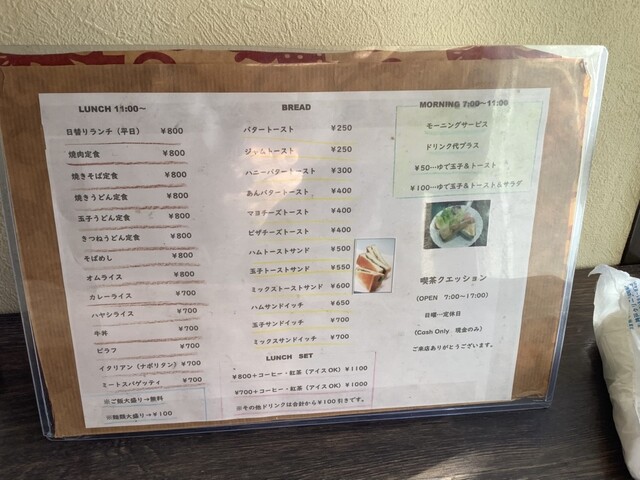 LUNCH 11:00～
日替りランチ（平日） ￥800
焼肉定食 ￥800
焼きそば定食 ￥800
焼きうどん定食 ￥800
玉子うどん定食 ￥800
きつねうどん定食 ￥800
そばめし ￥800
オムライス ￥800
カレーライス ￥700
ハヤシライス ￥700
牛丼 ￥700
ピラフ ￥700
イタリアン（ナポリタン） ￥700
ミートスパゲッティ ￥700
※ご飯大盛り→無料
※麺類大盛り→￥100
BREAD
バタートースト ￥250
ジャムトースト ￥250
ハニーバタートースト ￥300
あんバタートースト ￥400
マヨチーズトースト ￥400
ピザチーズトースト ￥400
ハムトーストサンド ￥500
玉子トーストサンド ￥550
ミックストーストサンド ￥600
ハムサンドイッチ ￥650
玉子サンドイッチ ￥700
ミックスサンドイッチ ￥700
LUNCH SET
￥800+コーヒー・紅茶（アイスOK）￥1100
￥700+コーヒー・紅茶（アイスOK）￥1000
※その他ドリンクは合計から￥100引きです。
MORNING 7:00～11:00
モーニングサービス
ドリンク代プラス
￥50…ゆで玉子＆トースト
￥100…ゆで玉子＆トースト＆サラダ
喫茶クエッション
（OPEN 7:00～17:00）
日曜…定休日
（Cash Only 現金のみ）
ご来店ありがとうございます。